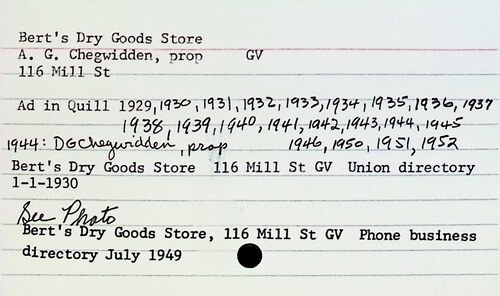 Bert's Dry Goods Store
A. G. Chegwidden, prop GV
116 Mill St
Ad in Quill 1929, 1930, 1931, 1932, 1933, 1934, 1935, 1936, 1937
1938, 1939, 1940, 1941, 1942, 1943, 1944, 1945
1944: DG Chegwidden, prop 1946, 1950, 1951, 1952
Bert's Dry Goods Store 116 Mill St GV Union directory
1-1-1930
See Photo
Bert's Dry Goods Store, 116 Mill St GV Phone business
directory July 1949